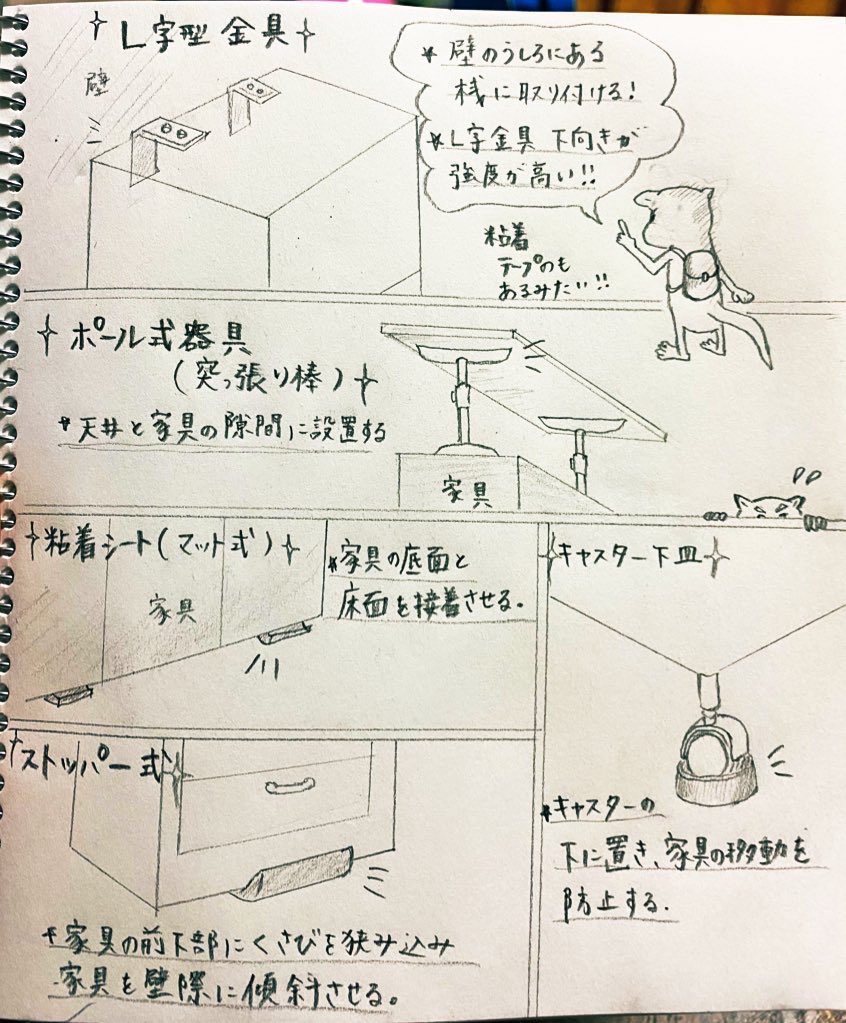 L字型 金具
壁
* 壁のうしろにある
桟に取り付ける!
* L字金具 下向きが
強度が高い!!
粘着
テープのも
あるみたい!!
ポール式器具
(突っ張り棒)
* 天井と家具の隙間に設置する
家具
粘着シート(マット式)
家具
* 家具の底面と
床面を接着させる。
キャスター下皿
* キャスターの
下に置き、家具の移動を
防止する.
ストッパー式
* 家具の前下部にくさびを狭み込み
家具を壁際に傾斜させる。